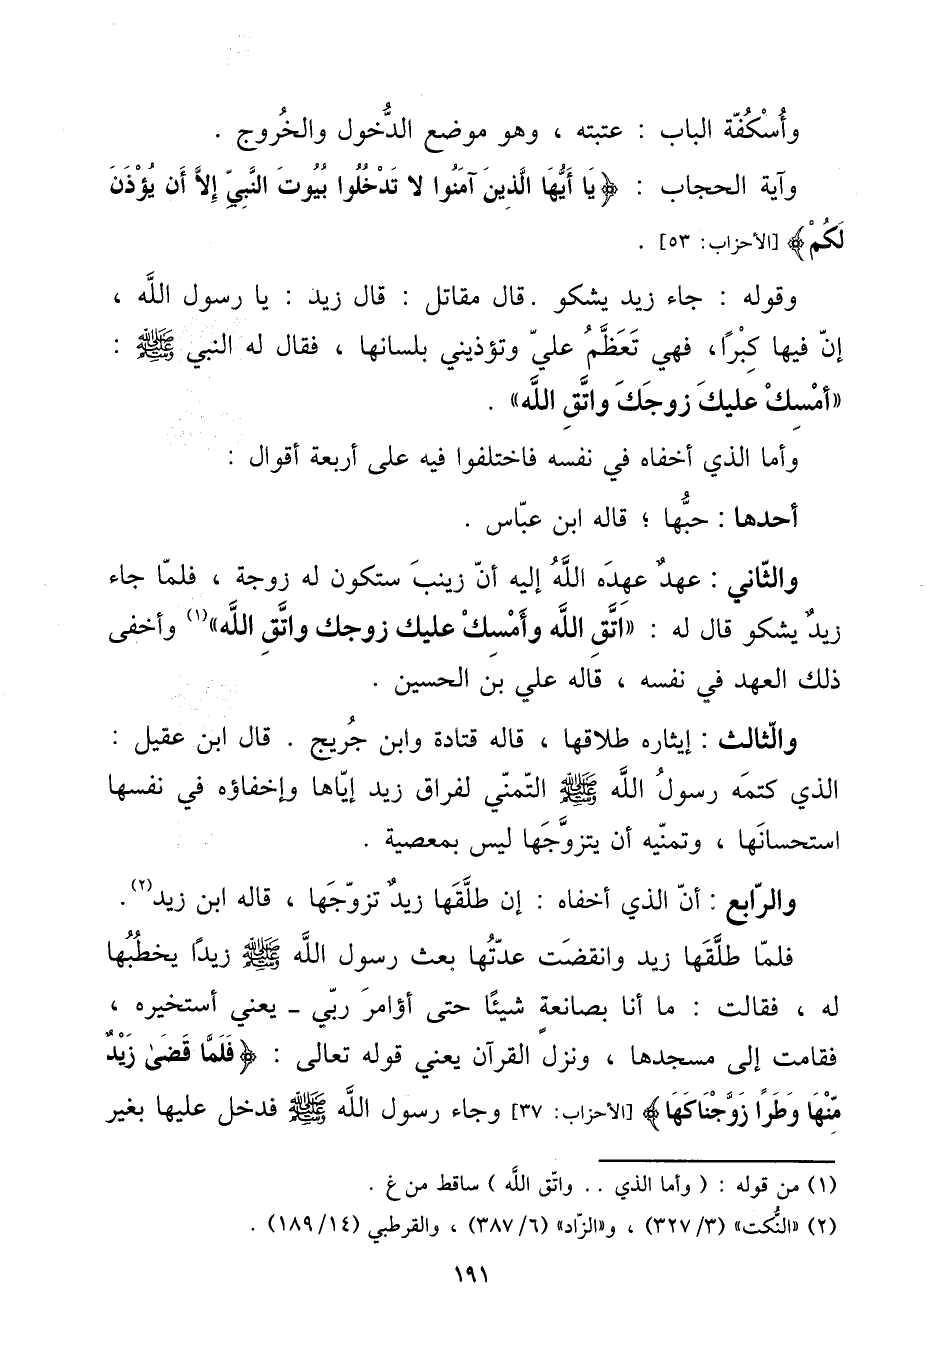 وأُسْكُفّة الباب : عتبته ، وهو موضع الدُّخول والخُروج .
وآية الحجاب : ﴿يَا أَيُّهَا الَّذِينَ آمَنُوا لا تَدْخُلُوا بُيُوتَ النَّبِيِّ إِلاَّ أَن يُؤْذَنَ
لَكُمْ﴾ [الأحزاب: ٥٣] .
وقوله : جاء زيد يشكو . قال مقاتل : قال زيد : يا رسول اللَّه ،
إنّ فيها كِبْرًا، فهي تَعَظَّمُ عليّ وتؤذيني بلسانها ، فقال له النبي ﷺ :
«أمْسِكْ عليكَ زوجَكَ واتَّقِ اللَّه» .
وأما الذي أخفاه في نفسه فاختلفوا فيه على أربعة أقوال :
أحدها : حبُّها ؛ قاله ابن عبّاس .
والثّاني : عهدٌ عهِدَه اللَّهُ إليه أنّ زينبَ ستكون له زوجة ، فلمّا جاء
زيدٌ يشكو قال له : «اتَّقِ اللَّه وأَمْسِكْ عليك زوجك واتَّقِ اللَّه»(١) وأخفى
ذلك العهد في نفسه ، قاله علي بن الحسين .
والثّالث : إيثاره طلاقها ، قاله قتادة وابن جُريج . قال ابن عقيل :
الذي كتمَه رسولُ اللَّه ﷺ التّمنّي لفراق زيد إيّاها وإخفاؤه في نفسها
استحسانَها ، وتمنّيه أن يتزوَّجَها ليس بمعصية .
والرّابع : أنّ الذي أخفاه : إن طلَّقَها زيدٌ تزوّجَها ، قاله ابن زيد(٢) .
فلمّا طلَّقَها زيد وانقضَت عدّتُها بعث رسول اللَّه ﷺ زيدًا يخطبُها
له ، فقالت : ما أنا بصانعةٍ شيئًا حتى أؤامرَ ربّي ـ يعني أستخيره ،
فقامت إلى مسجدها ، ونزل القرآن يعني قوله تعالى : ﴿فَلَمَّا قَضَىٰ زَيْدٌ
مِّنْهَا وَطَرًا زَوَّجْنَاكَهَا﴾ [الأحزاب: ٣٧] وجاء رسول اللَّه ﷺ فدخل عليها بغير
(١) من قوله : ( وأما الذي . . واتّق اللَّه ) ساقط من غ .
(٢) «النُّكت» (٣/ ٣٢٧) ، و«الزّاد» (٦/ ٣٨٧) ، والقرطبي (١٤/ ١٨٩) .
١٩١